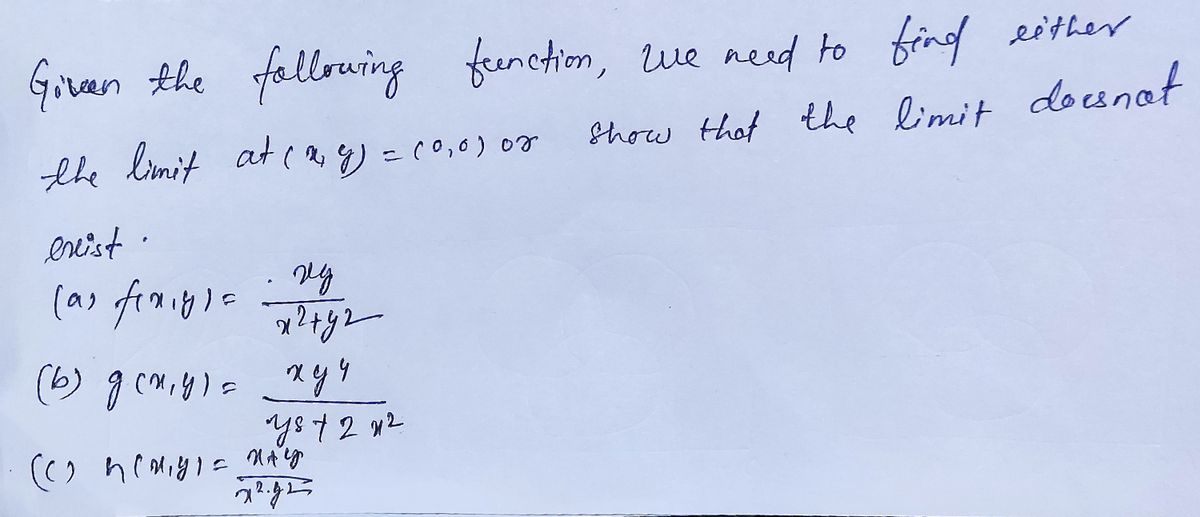 Given the following function, we need to find either
the limit at (x, y) = (0,0) or show that the limit doesnot
exist.
(a) f(x,y) = xy / x²+y²
(b) g(x,y) = xy⁴ / y⁸ + 2x²
(c) h(x,y) = x+y / x²·y²